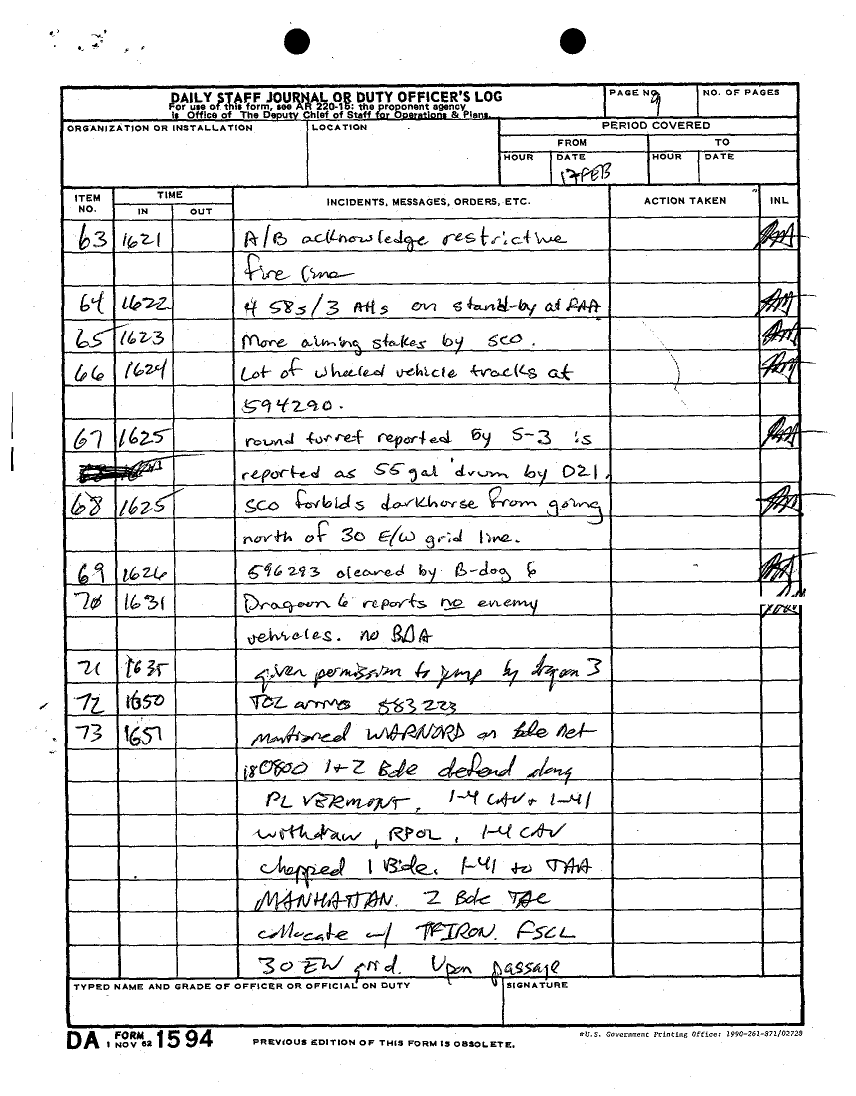 DAILY STAFF JOURNAL OR DUTY OFFICER'S LOG
For use of this form, see AR 220-15; the proponent agency
is Office of The Deputy Chief of Staff for Operations & Plans.
PAGE NO. 9
NO. OF PAGES
ORGANIZATION OR INSTALLATION
LOCATION
PERIOD COVERED
FROM TO
HOUR DATE HOUR DATE
17 FEB
ITEM NO. TIME INCIDENTS, MESSAGES, ORDERS, ETC. ACTION TAKEN INL
IN OUT
63 1621 A/B acknowledge restrictive
fire line
64 1622 4 58s/3 AHs on stand-by at RAA
65 1623 More aiming stakes by SCO.
66 1624 Lot of wheeled vehicle tracks at
594290.
67 1625 round turret reported by S-3 is
reported as 55 gal drum by D21.
68 1625 SCO forbids darkhorse from going
north of 30 E/W grid line.
69 1626 596293 cleared by B-dog 6
70 1631 Dragoon 6 reports no enemy
vehicles. no BDA
71 1635 given permission to jump by dragon 3
72 1650 arrives 583223
73 1651 mentioned WARNORD on bde net
180800 1+2 Bde defend along
PL VERMONT, 1-4 CAV + 1-41
withdraw, RPOL, 1-4 CAV
chopped 1 Bde. 1-41 to TAA
MANHATTAN. 2 Bde TAC
collocate w/ TF IRON. FSCL
30 EW grid. Upon passage
TYPED NAME AND GRADE OF OFFICER OR OFFICIAL ON DUTY
SIGNATURE
DA FORM 1594
1 NOV 62
PREVIOUS EDITION OF THIS FORM IS OBSOLETE.
*U.S. Government Printing Office: 1990-261-871/02728